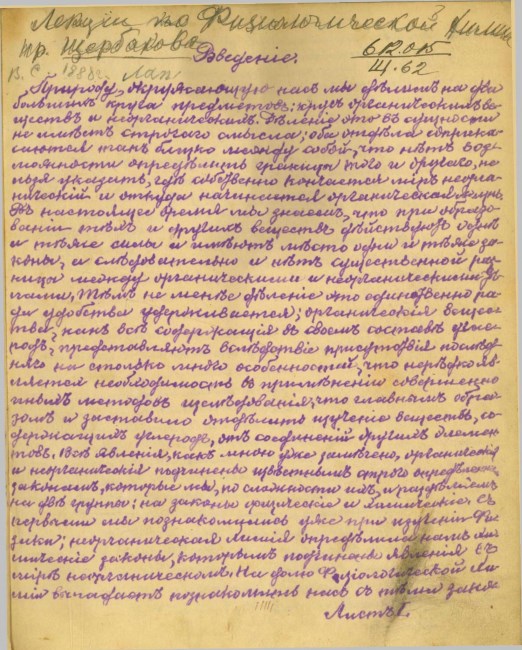 Лекціи по Физіологической Химіи
пр. Щербакова
612.015
Щ-62
1888г.
Введеніе.
Природу, окружающую насъ мы дѣлимъ на два
большихъ круга предметовъ: кругъ органическихъ ве-
ществъ и неорганическихъ. Дѣленіе это въ сущности
не имѣетъ строгаго смысла; оба отдѣла соприка-
саются такъ близко между собой, что нѣтъ воз-
можности опредѣлить границы того и другаго, не-
льзя указать, гдѣ собственно кончается міръ неорга-
ническій и откуда начинается органическая жизнь.
Въ настоящее время мы знаемъ, что при образо-
ваніи тѣхъ и другихъ веществъ дѣйствуютъ однѣ
и тѣже силы и имѣютъ мѣсто одни и тѣже за-
коны, и слѣдовательно и нѣтъ существенной раз-
ницы между органическими и неорганическими тѣ-
лами. Тѣмъ не менѣе дѣленіе это единственно ра-
ди удобства удерживается; органическія вещес-
тва, какъ всѣ содержащія въ своемъ составѣ угле-
родъ, представляютъ вслѣдствіе присутствія послѣд-
няго на столько много особенностей, что нерѣдко яв-
ляется необходимость въ примѣненіи совершенно
иныхъ методовъ изслѣдованія, что главнымъ обра-
зомъ и заставило отдѣлить изученіе веществъ, со-
держащихъ углеродъ, отъ соединеній другихъ элемен-
товъ. Всѣ явленія, какъ много уже замѣчено, органическія
и неорганическія подчинены извѣстнымъ строго опредѣленнымъ
законамъ, которые мы, по сложности ихъ, и раздѣляемъ
на двѣ группы: на законы физическіе и химическіе. Съ
первыми мы познакомились уже при изученіи Фи-
зики; неорганическая Химія опредѣлила намъ хи-
мическіе законы, которымъ подчинены явленія въ
мірѣ неорганическомъ. На долю Физіологической Хи-
міи выпадаетъ познакомить насъ съ тѣми зако-
Листъ 1.